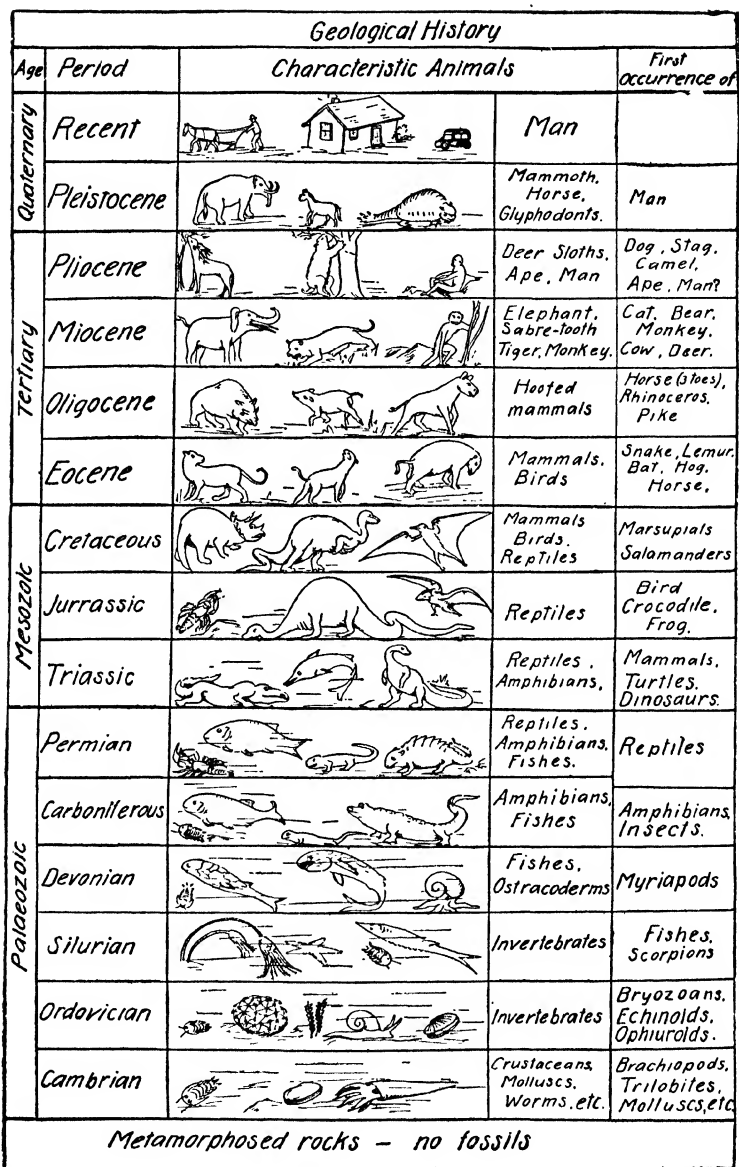 Geological History
Age Period Characteristic Animals First
occurrence of
Quaternary
Recent Man
Pleistocene Mammoth,
Horse,
Glyphodonts.
Man
Tertiary
Pliocene Deer Sloths,
Ape, Man
Dog, Stag,
Camel,
Ape, Man?
Miocene Elephant,
Sabre-tooth
Tiger, Monkey.
Cat, Bear,
Monkey,
Cow, Deer.
Oligocene Hoofed
mammals
Horse (3 toes),
Rhinoceros,
Pike
Eocene Mammals,
Birds
Snake, Lemur,
Bat, Hog,
Horse,
Mesozoic
Cretaceous Mammals
Birds,
Reptiles
Marsupials
Salamanders
Jurrassic Reptiles
Bird
Crocodile,
Frog.
Triassic Reptiles,
Amphibians,
Mammals,
Turtles.
Dinosaurs.
Palaeozoic
Permian Reptiles,
Amphibians,
Fishes.
Reptiles
Carboniferous Amphibians,
Fishes
Amphibians,
Insects.
Devonian Fishes,
Ostracoderms
Myriapods
Silurian Invertebrates
Fishes,
Scorpions
Ordovician Invertebrates
Bryozoans,
Echinoids,
Ophiuroids.
Cambrian Crustaceans,
Molluscs,
Worms, etc.
Brachiopods,
Trilobites,
Molluscs, etc.
Metamorphosed rocks – no fossils